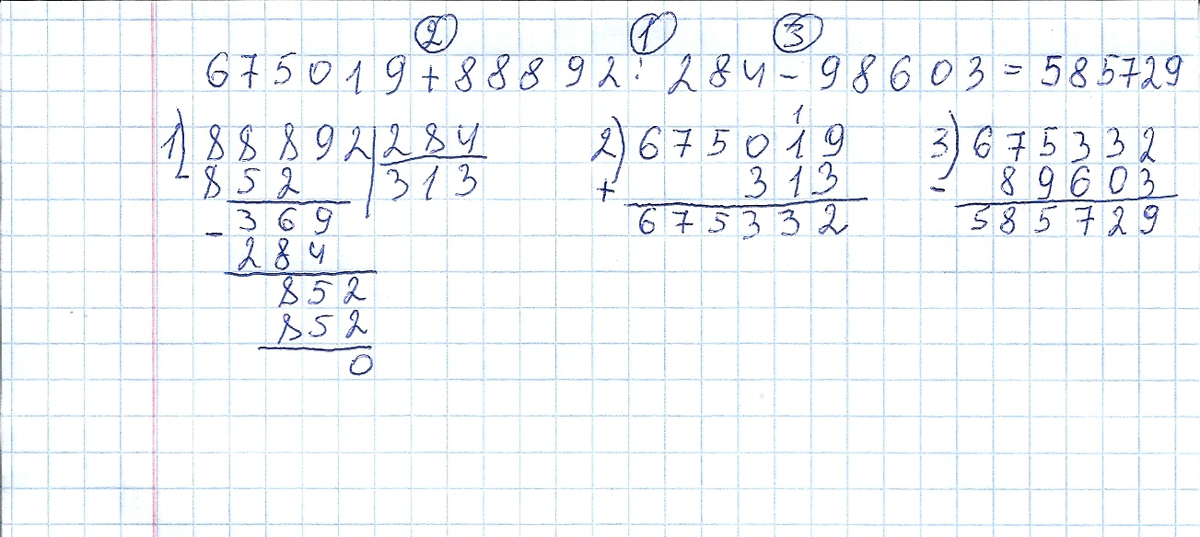 2 1 3
675019+88892:284-98603=585729
1) 88892 284 2) 675019 3) 675332
- 852 313 + 313 - 89603
- 369 675332 585729
284
852
852
0